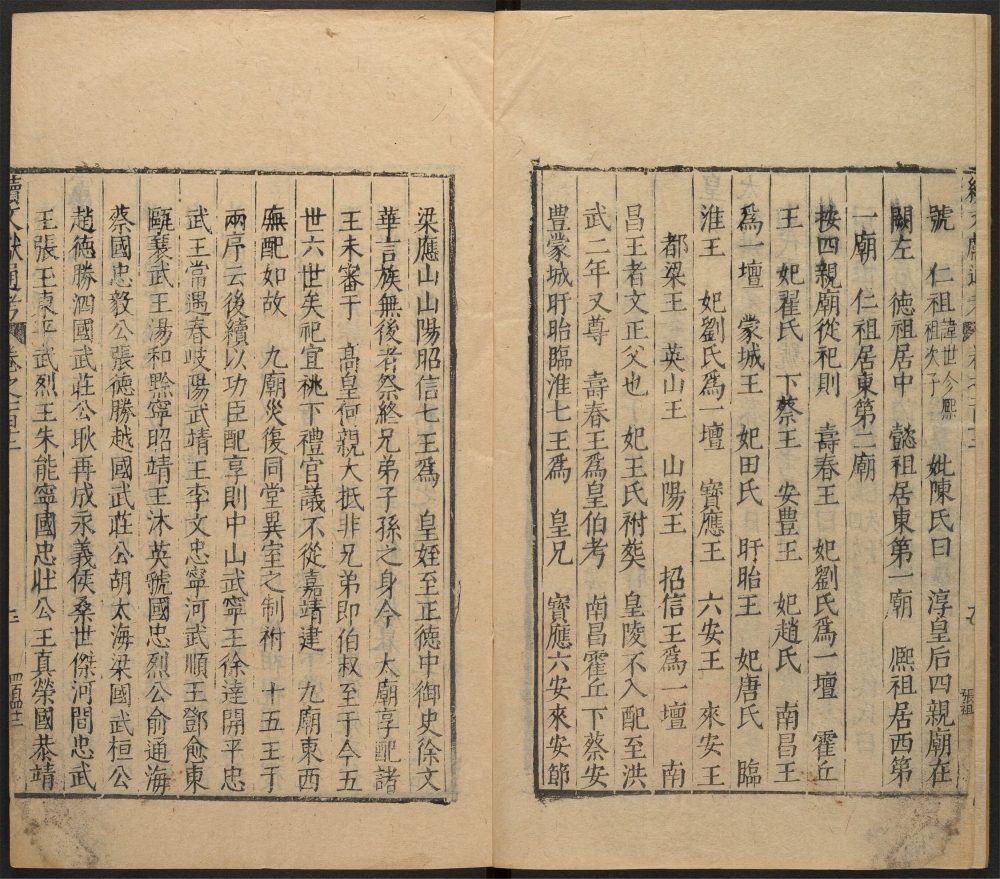 號　仁祖諱世今熈祖次子　妣陳氏曰　淳皇后四親廟在
闕左　德祖居中　懿祖居東第一廟　熈祖居西第
一廟　仁祖居東第二廟
按四親廟從祀則　壽春王　妃劉氏爲一壇　霍丘
王　妃翟氏　下蔡王　安豊王　妃趙氏　南昌王
爲一壇　蒙城王　妃田氏　盱眙王　妃唐氏　臨
淮王　妃劉氏爲一壇　寶應王　六安王　來安王
都梁王　英山王　山陽王　招信王爲一壇　南
昌王者文正父也　妃王氏祔葬　皇陵不入配至洪
武二年又尊　壽春王爲皇伯考　南昌霍丘下蔡安
豊蒙城盱眙臨淮七王爲　皇兄　寶應六安來安節
張
梁應山山陽昭信七王爲　皇姪至正德中御史徐文
華言族無後者祭終兄弟子孫之身今　太廟享配諸
王未審于　高皇何親大抵非兄弟即伯叔至于今五
世六世矣祀宜祧下禮官議不從嘉靖建　九廟東西
廡配如故　九廟災復同堂異室之制祔　十五王于
兩序云後續以功臣配享則中山武寧王徐達開平忠
武王常遇春岐陽武靖王李文忠寧河武順王鄧愈東
甌襄武王湯和黔寧昭靖王沐英虢國忠烈公俞通海
蔡國忠毅公張德勝越國武莊公胡太海梁國武桓公
趙德勝泗國武莊公耿再成永義侯桑世傑河間忠武
王張王東平武烈王朱能寧國忠壯公王真榮國恭靖
續文獻通考　卷之百三